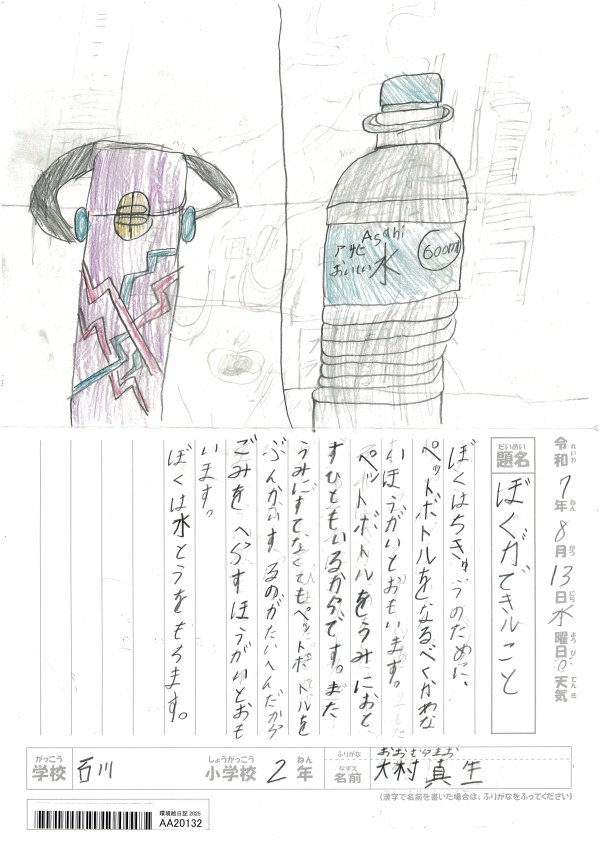 Asahi
アサヒ
おいしい水
600ml
令和7年8月13日水曜日 天気
れいわ ねん がつ にち ようび てんき
だいめい
題名
ぼくができルこと
ぼくはちきゅうのために、
ペットボトルをなるべくかわな
いほうがいとおもいます。
ペットボトルをうみにおと
すひともいるからです。また
うみにすてなくてもペットボトルを
ぶんかいするのがたいへんだから
ごみをへらすほうがいとおも
います。
ぼくは水とうをもちます。
がっこう
学校
石川
しょうがっこう
小学校
2
ねん
年
ふりがな
おおむらまお
なまえ
名前
大村 真生
(漢字で名前を書いた場合は、ふりがなをふってください)
環境絵日記 2025
AA20132